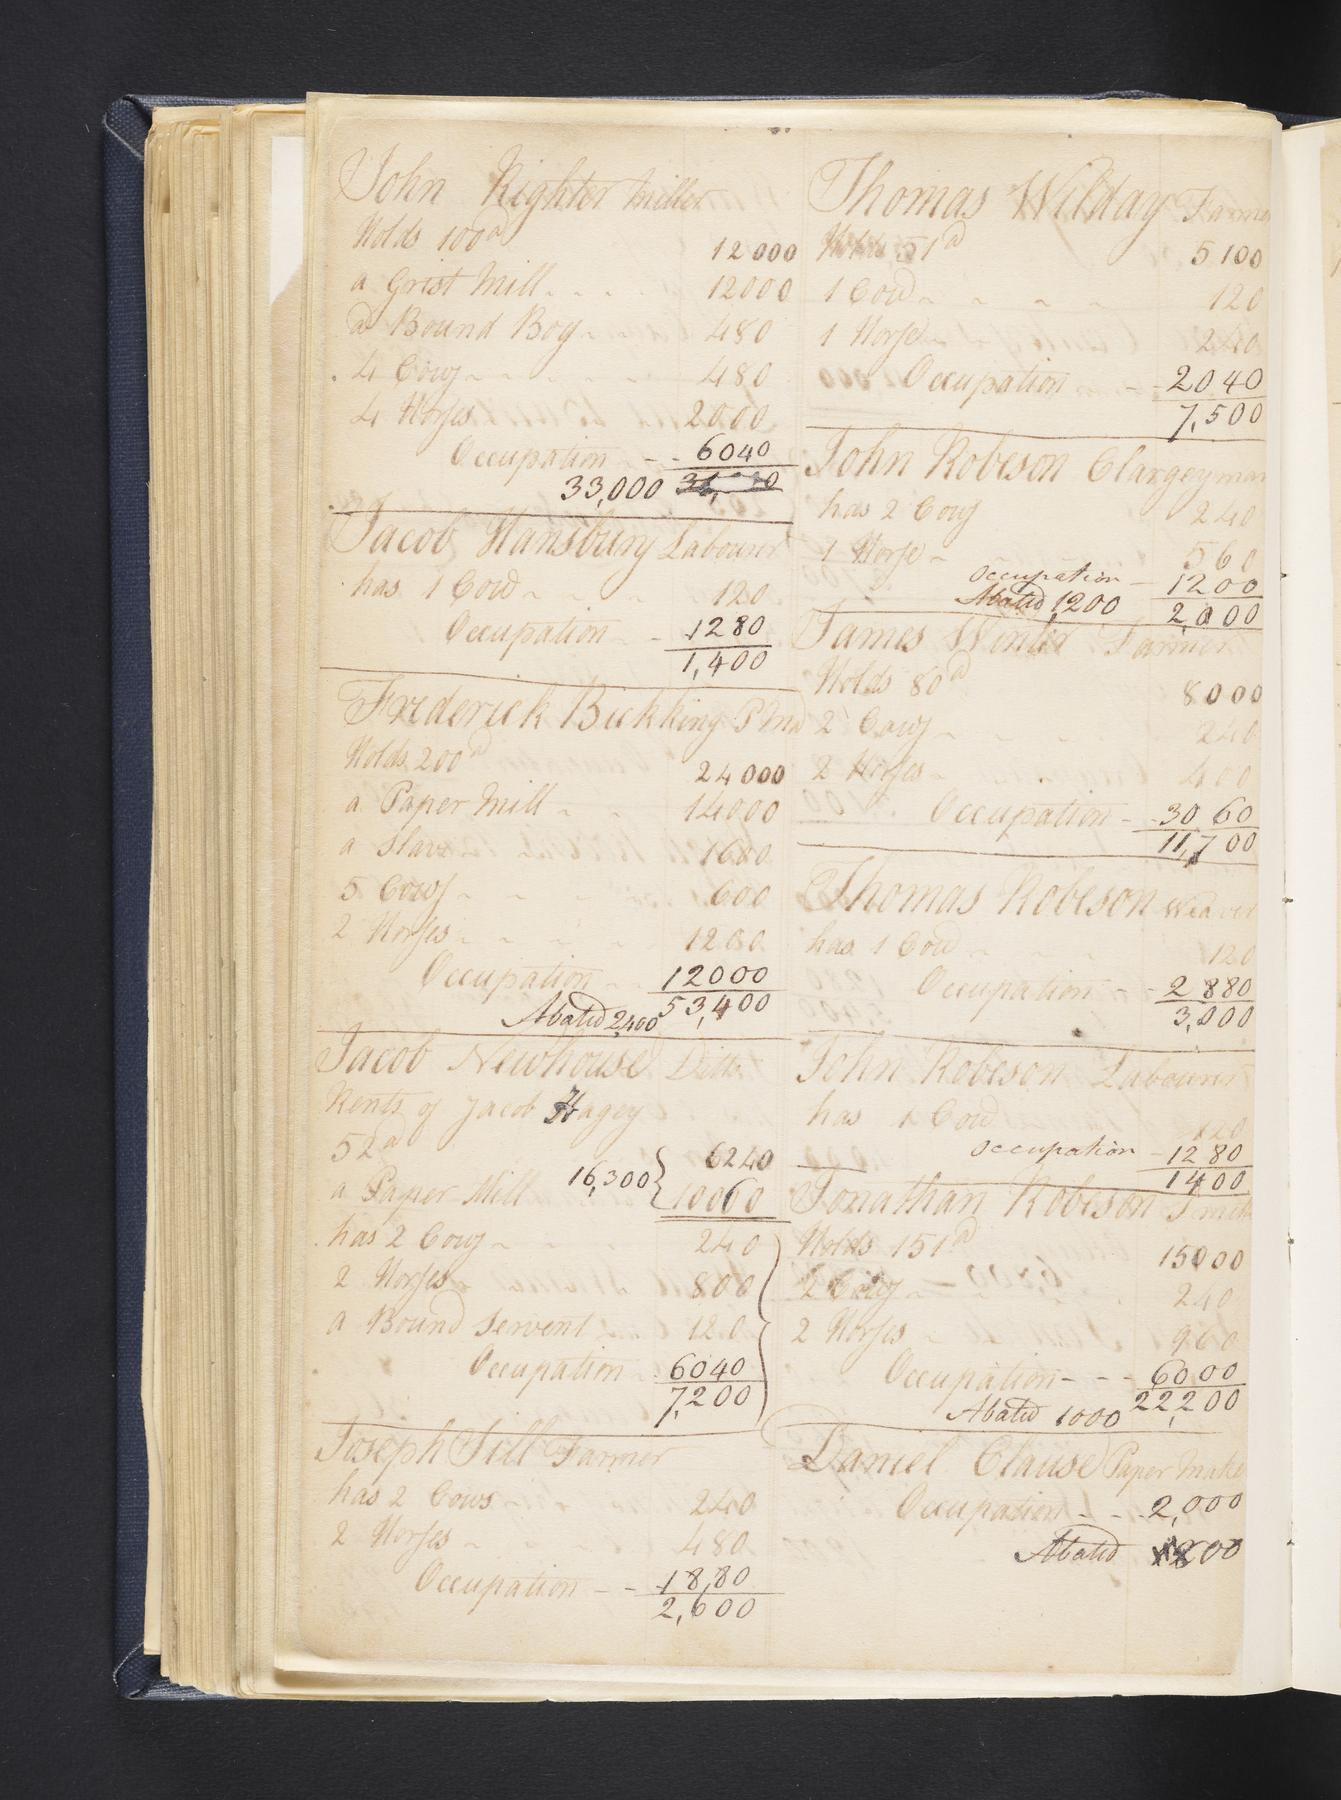 John Righter Miller
Holds 100a 12000
a Grist Mill 12000
a Bound Boy 480
4 Cows 480
4 Horses 2000
Occupation 6040
33,000
Jacob Hansbury Labourer
has 1 Cow 120
Occupation 1280
1,400
Frederick Bickking P Mr
Holds 200a 24000
a Paper Mill 14000
a Slave 1600
5 Cows 600
2 Horses 1200
Occupation 12000
53,400
Abated 2,400
Jacob Newhouse Ditto
Rents of Jacob Hagey
52a 6240
a Paper Mill 16,300 10060
has 2 Cows 240
2 Horses 800
a Bound Servent 120
Occupation 6040
7,200
Joseph Sill Farmer
has 2 Cows 240
2 Horses 480
Occupation 1880
2,600
Thomas Wilday Farmer
Holds 51a 5100
1 Cow 120
1 Horse 240
Occupation 2040
7,500
John Robeson Clargeyman
has 2 Cows 240
1 Horse 560
Occupation 1200
Abated 1,200 2,000
James Winter Farmer
Holds 80a 8000
2 Cows 240
2 Horses 400
Occupation 3060
11,700
Thomas Robeson Weaver
has 1 Cow 120
Occupation 2880
3,000
John Robeson Labourer
has 1 Cow 120
Occupation 1280
1400
Jonathan Robeson Smith
Holds 151a 15000
2 Cows 240
2 Horses 960
Occupation 6000
Abated 1000 22,200
Daniel Clause Paper Make
Occupation 2,000
Abated